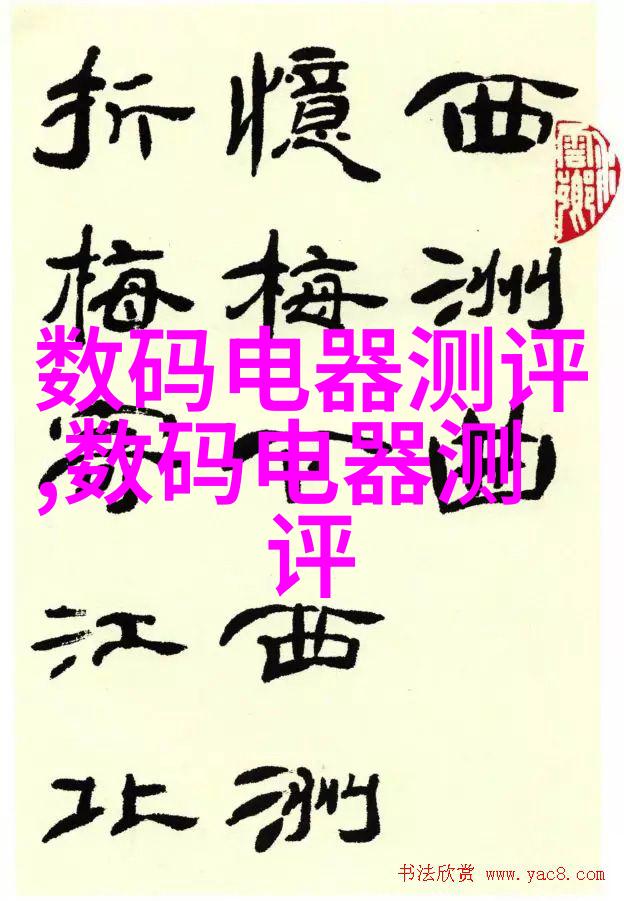 西洲曲
憶梅下西洲
折梅寄江北
数码电器测评
,数码电器测
评
书法欣赏 www.yac8.com